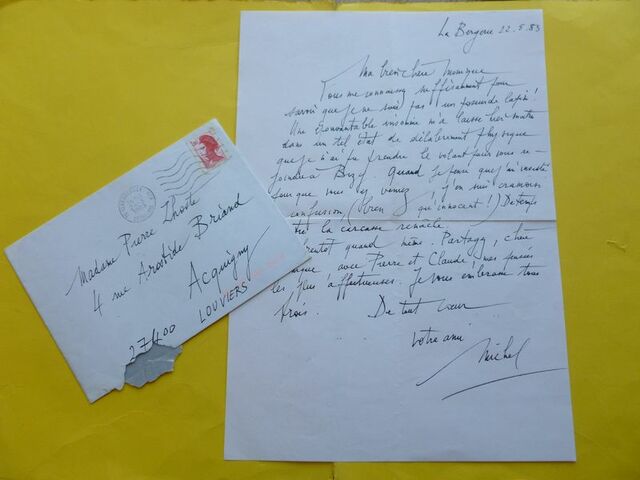 La Bergerie 22.5.83
Ma bien chère Monique
Vous me connaissez suffisamment pour
savoir que je ne suis pas un poseur de lapin !
Une épouvantable insomnie m'a laissé hier matin
dans un tel état de délabrement physique
que je n'ai pu prendre le volant pour vous re-
joindre à Bizy. Quand je pense que j'ai insisté
pour que vous y veniez j'en suis cramoisi
confusion (bien qu'innocent !) De temps
la carcasse renâcle.
quand même. Partagez, chère
avec Pierre et Claude, mes pensées
les plus affectueuses. Je vous embrasse tous
trois. De tout cœur
Votre ami
Michel
Madame Pierre Lhoste
4 rue Aristide Briand
Acquigny
27400 LOUVIERS